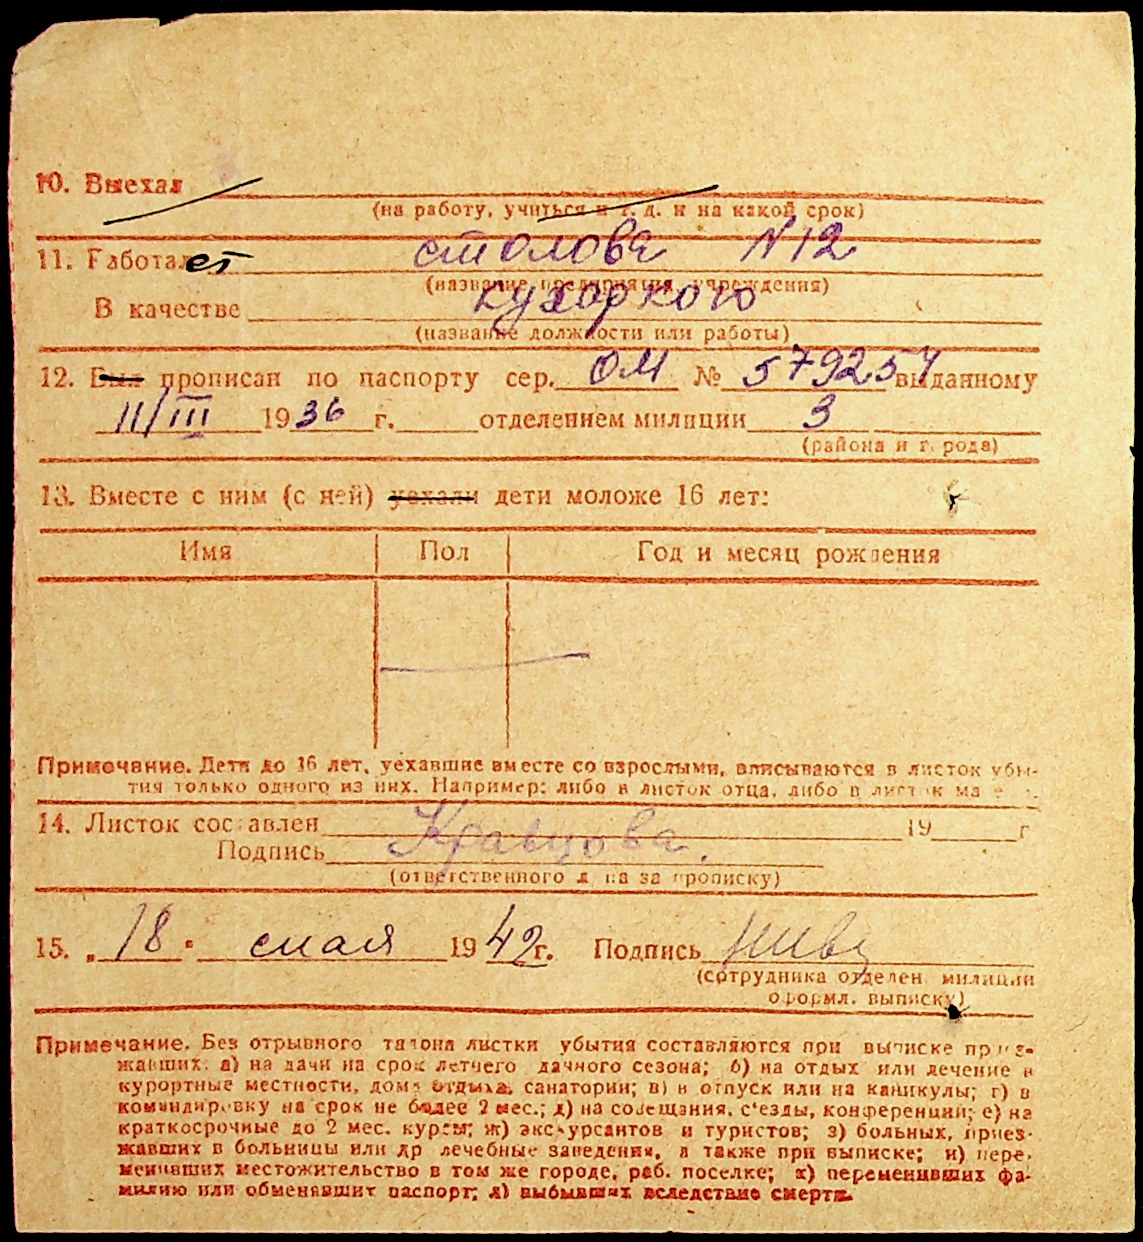 10. Выехал
(на работу, учиться и т. д. и на какой срок)
11. Работает столова N12
(название предприятия, учреждения)
В качестве кухаркою
(название должности или работы)
12. Был прописан по паспорту сер. ОМ № 579257 выданному
11/III 1936 г. отделением милиции 3
(района и города)
13. Вместе с ним (с ней) уехали дети моложе 16 лет:
Имя Пол Год и месяц рождения
Примечание. Дети до 16 лет, уехавшие вместе со взрослыми, вписываются в листок убы-
тия только одного из них. Например: либо в листок отца, либо в листок ма
14. Листок составлен 19 г
Подпись Кравцова.
(ответственного л на за прописку)
15. „18" мая 1942 г. Подпись
(сотрудника отделен. милиции
оформл. выписку)
Примечание. Без отрывного талона листки убытия составляются при выписке приез-
жавших: а) на дачи на срок летнего дачного сезона; б) на отдых или лечение в
курортные местности, дома отдыха, санатории; в) в отпуск или на каникулы; г) в
командировку на срок не более 2 мес.; д) на совещания, с'езды, конференции; е) на
краткосрочные до 2 мес. курсы; ж) экскурсантов и туристов; з) больных, приез-
жавших в больницы или др лечебные заведения, а также при выписке; и) пере-
менивших местожительство в том же городе, раб. поселке; к) переменивших фа-
милию или обменявших паспорт; л) выбывших вследствие смерти.